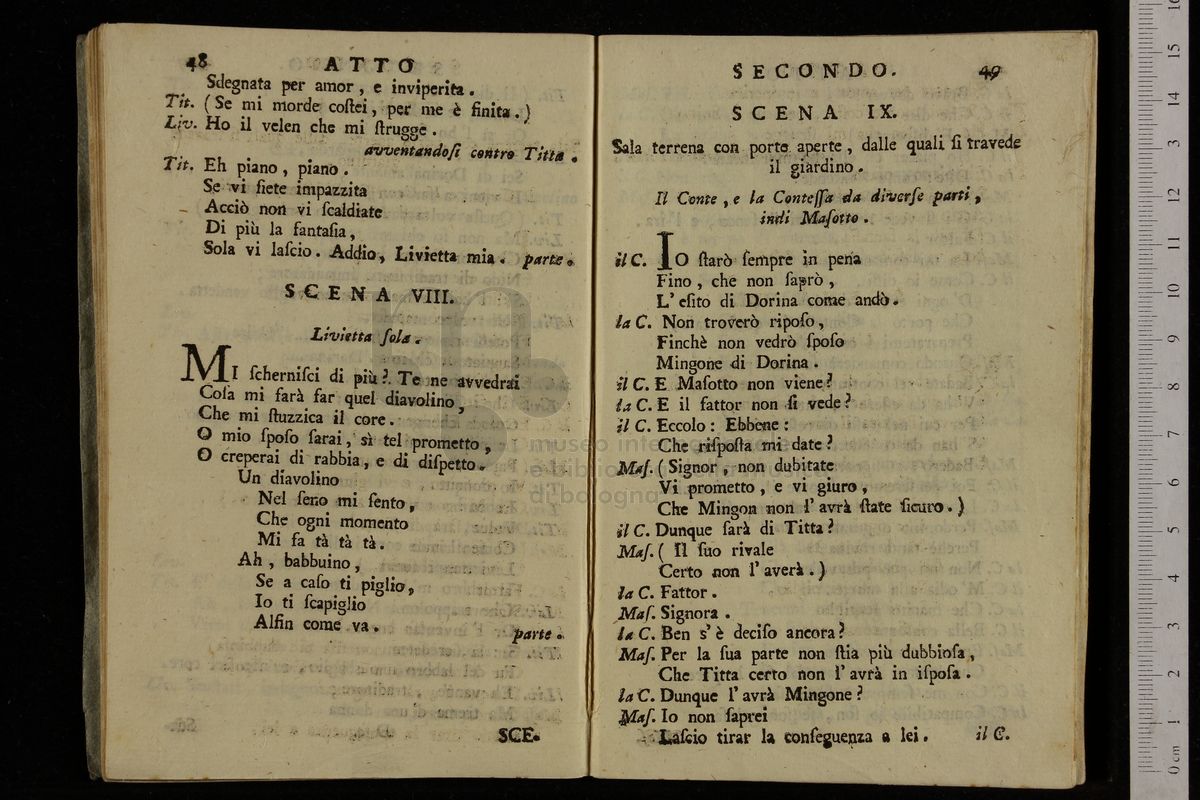 48 ATTO
Sdegnata per amor, e inviperita.
Tit. (Se mi morde coſtei, per me è finita.)
Liv. Ho il velen che mi ſtrugge.
avventandoſi contro Titta.
Tit. Eh piano, piano.
Se vi ſiete impazzita
Acciò non vi ſcaldiate
Di più la fantaſia,
Sola vi laſcio. Addio, Livietta mia. parte.
SCENA VIII.
Livietta ſola.
MI ſcherniſci di più? Te ne avvedrai
Coſa mi farà far quel diavolino,
Che mi ſtuzzica il core.
O mio ſpoſo ſarai, sì tel prometto,
O creperai di rabbia, e di diſpetto.
Un diavolino
Nel ſeno mi ſento,
Che ogni momento
Mi fa tà tà tà.
Ah, babbuino,
Se a caſo ti piglio,
Io ti ſcapiglio
Alfin come va. parte.
SCE.
SECONDO. 49
SCENA IX.
Sala terrena con porte aperte, dalle quali ſi travede
il giardino.
Il Conte, e la Conteſſa da diverſe parti,
indi Maſotto.
il C. IO ſtarò ſempre in pena
Fino, che non ſaprò,
L' eſito di Dorina come andò.
la C. Non troverò ripoſo,
Finchè non vedrò ſpoſo
Mingone di Dorina.
il C. E Maſotto non viene?
la C. E il fattor non ſi vede?
il C. Eccolo: Ebbene:
Che riſpoſta mi date?
Maſ. (Signor, non dubitate
Vi prometto, e vi giuro,
Che Mingon non l' avrà ſtate ſicuro.)
il C. Dunque ſarà di Titta?
Maſ. (Il ſuo rivale
Certo non l' averà.)
la C. Fattor.
Maſ. Signora.
la C. Ben s' è deciſo ancora?
Maſ. Per la ſua parte non ſtia più dubbioſa,
Che Titta certo non l' avrà in iſpoſa.
la C. Dunque l' avrà Mingone?
Maſ. Io non ſaprei
Laſcio tirar la conſeguenza a lei. il C.
museo inte
e bibliot
di bologna
0 cm 1 2 3 4 5 6 7 8 9 10 11 12 13 14 15 16